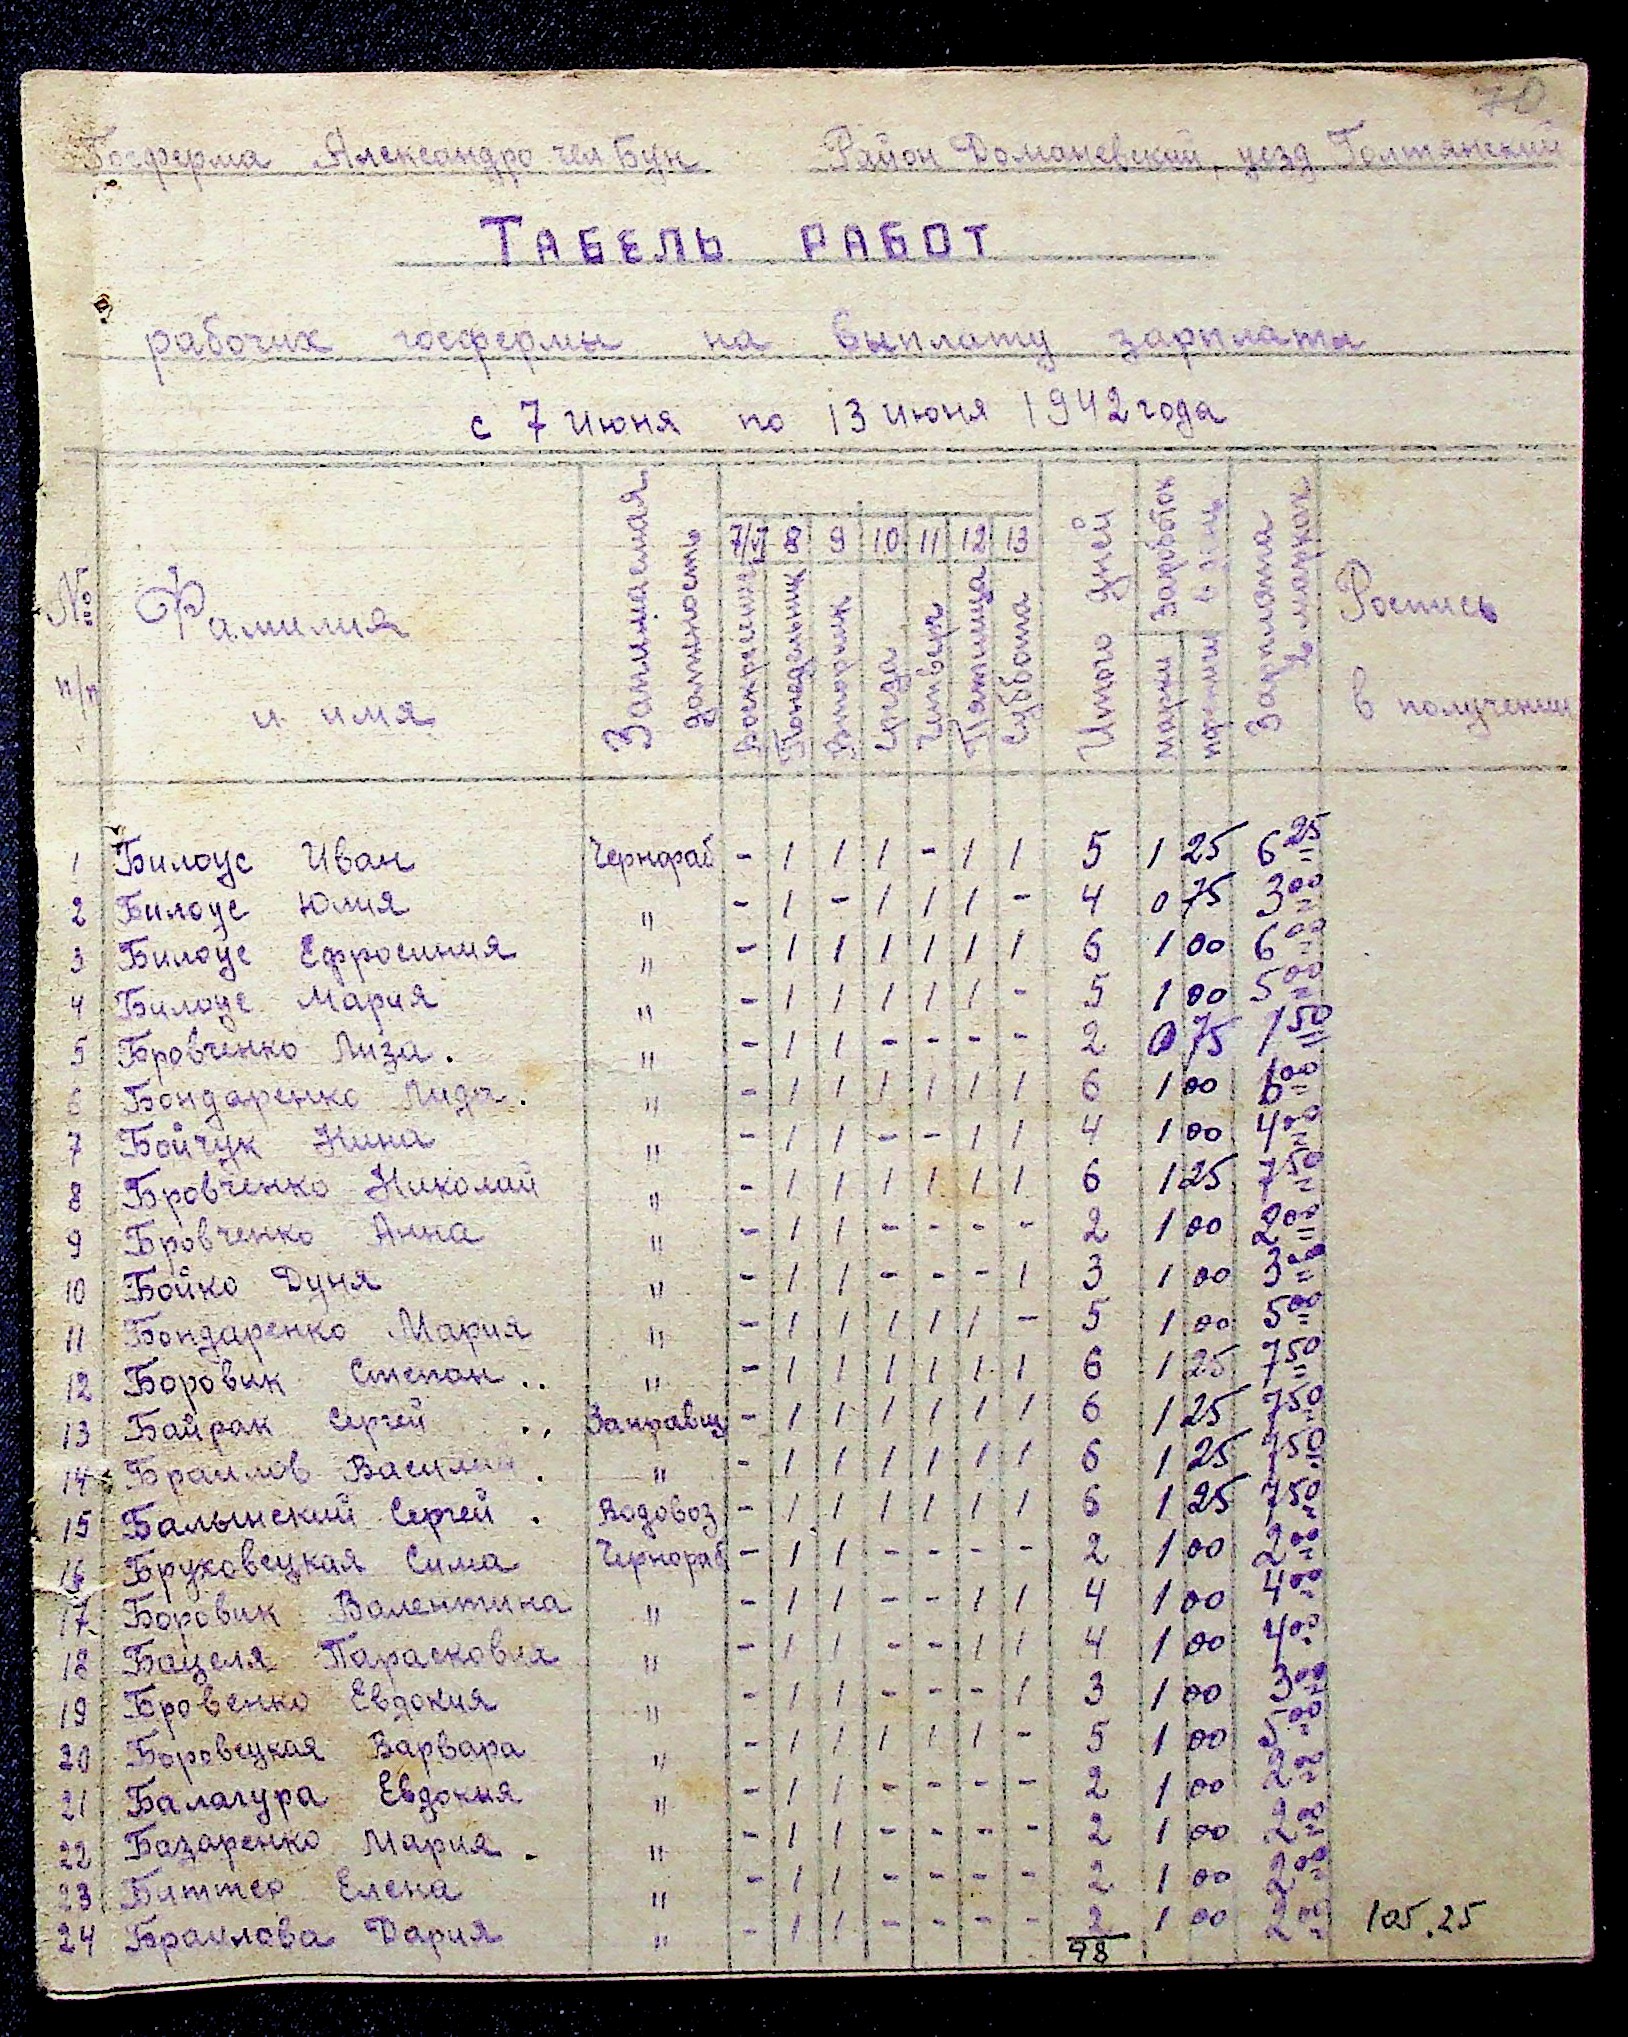 70
Госферма Александро чел Бун Район Доманевский, уезд Голтянский
ТАБЕЛЬ РАБОТ
рабочих госфермы на выплату зарплаты
с 7 июня по 13 июня 1942 года
№ п/п Фамилия и имя Занимаемая должность 7/VI Воскресение 8 Понедельник 9 Вторник 10 Среда 11 Четверг 12 Пятница 13 Суббота Итого дней Заработок марки пфениги Зарплата в марках Роспись в получении
1 Билоус Иван Чернораб - 1 1 1 - 1 1 5 1 25 6 25
2 Билоус Юлия " - 1 - 1 1 1 - 4 0 75 3 00
3 Билоус Ефросиния " - 1 1 1 1 1 1 6 1 00 6 00
4 Билоус Мария " - 1 1 1 1 1 - 5 1 00 5 00
5 Бровченко Лиза. " - 1 1 - - - - 2 0 75 1 50
6 Бондаренко Лида. " - 1 1 1 1 1 1 6 1 00 6 00
7 Бойчук Нина " - 1 1 - - 1 1 4 1 00 4 00
8 Бровченко Николай " - 1 1 1 1 1 1 6 1 25 7 50
9 Бровченко Анна " - 1 1 - - - - 2 1 00 2 00
10 Бойко Дуня " - 1 1 - - - 1 3 1 00 3 00
11 Бондаренко Мария " - 1 1 1 1 1 - 5 1 00 5 00
12 Боровик Степан .. " - 1 1 1 1 1 1 6 1 25 7 50
13 Байрак Сергей .. Заправщ - 1 1 1 1 1 1 6 1 25 7 50
14 Браилов Василий . " - 1 1 1 1 1 1 6 1 25 7 50
15 Балынский Сергей . Водовоз - 1 1 1 1 1 1 6 1 25 7 50
16 Бруховецкая Сима Чернораб - 1 1 - - - - 2 1 00 2 00
17 Боровик Валентина " - 1 1 - - 1 1 4 1 00 4 00
18 Бацеля Парасковия " - 1 1 - - 1 1 4 1 00 4 00
19 Бровенко Евдокия " - 1 1 - - - 1 3 1 00 3 00
20 Боровецкая Варвара " - 1 1 1 1 1 - 5 1 00 5 00
21 Балагура Евдокия " - 1 1 - - - - 2 1 00 2 00
22 Базаренко Мария . " - 1 1 - - - - 2 1 00 2 00
23 Биттер Елена " - 1 1 - - - - 2 1 00 2 00
24 Браилова Дария " - 1 1 - - - - 2 1 00 2 00 105.25
98